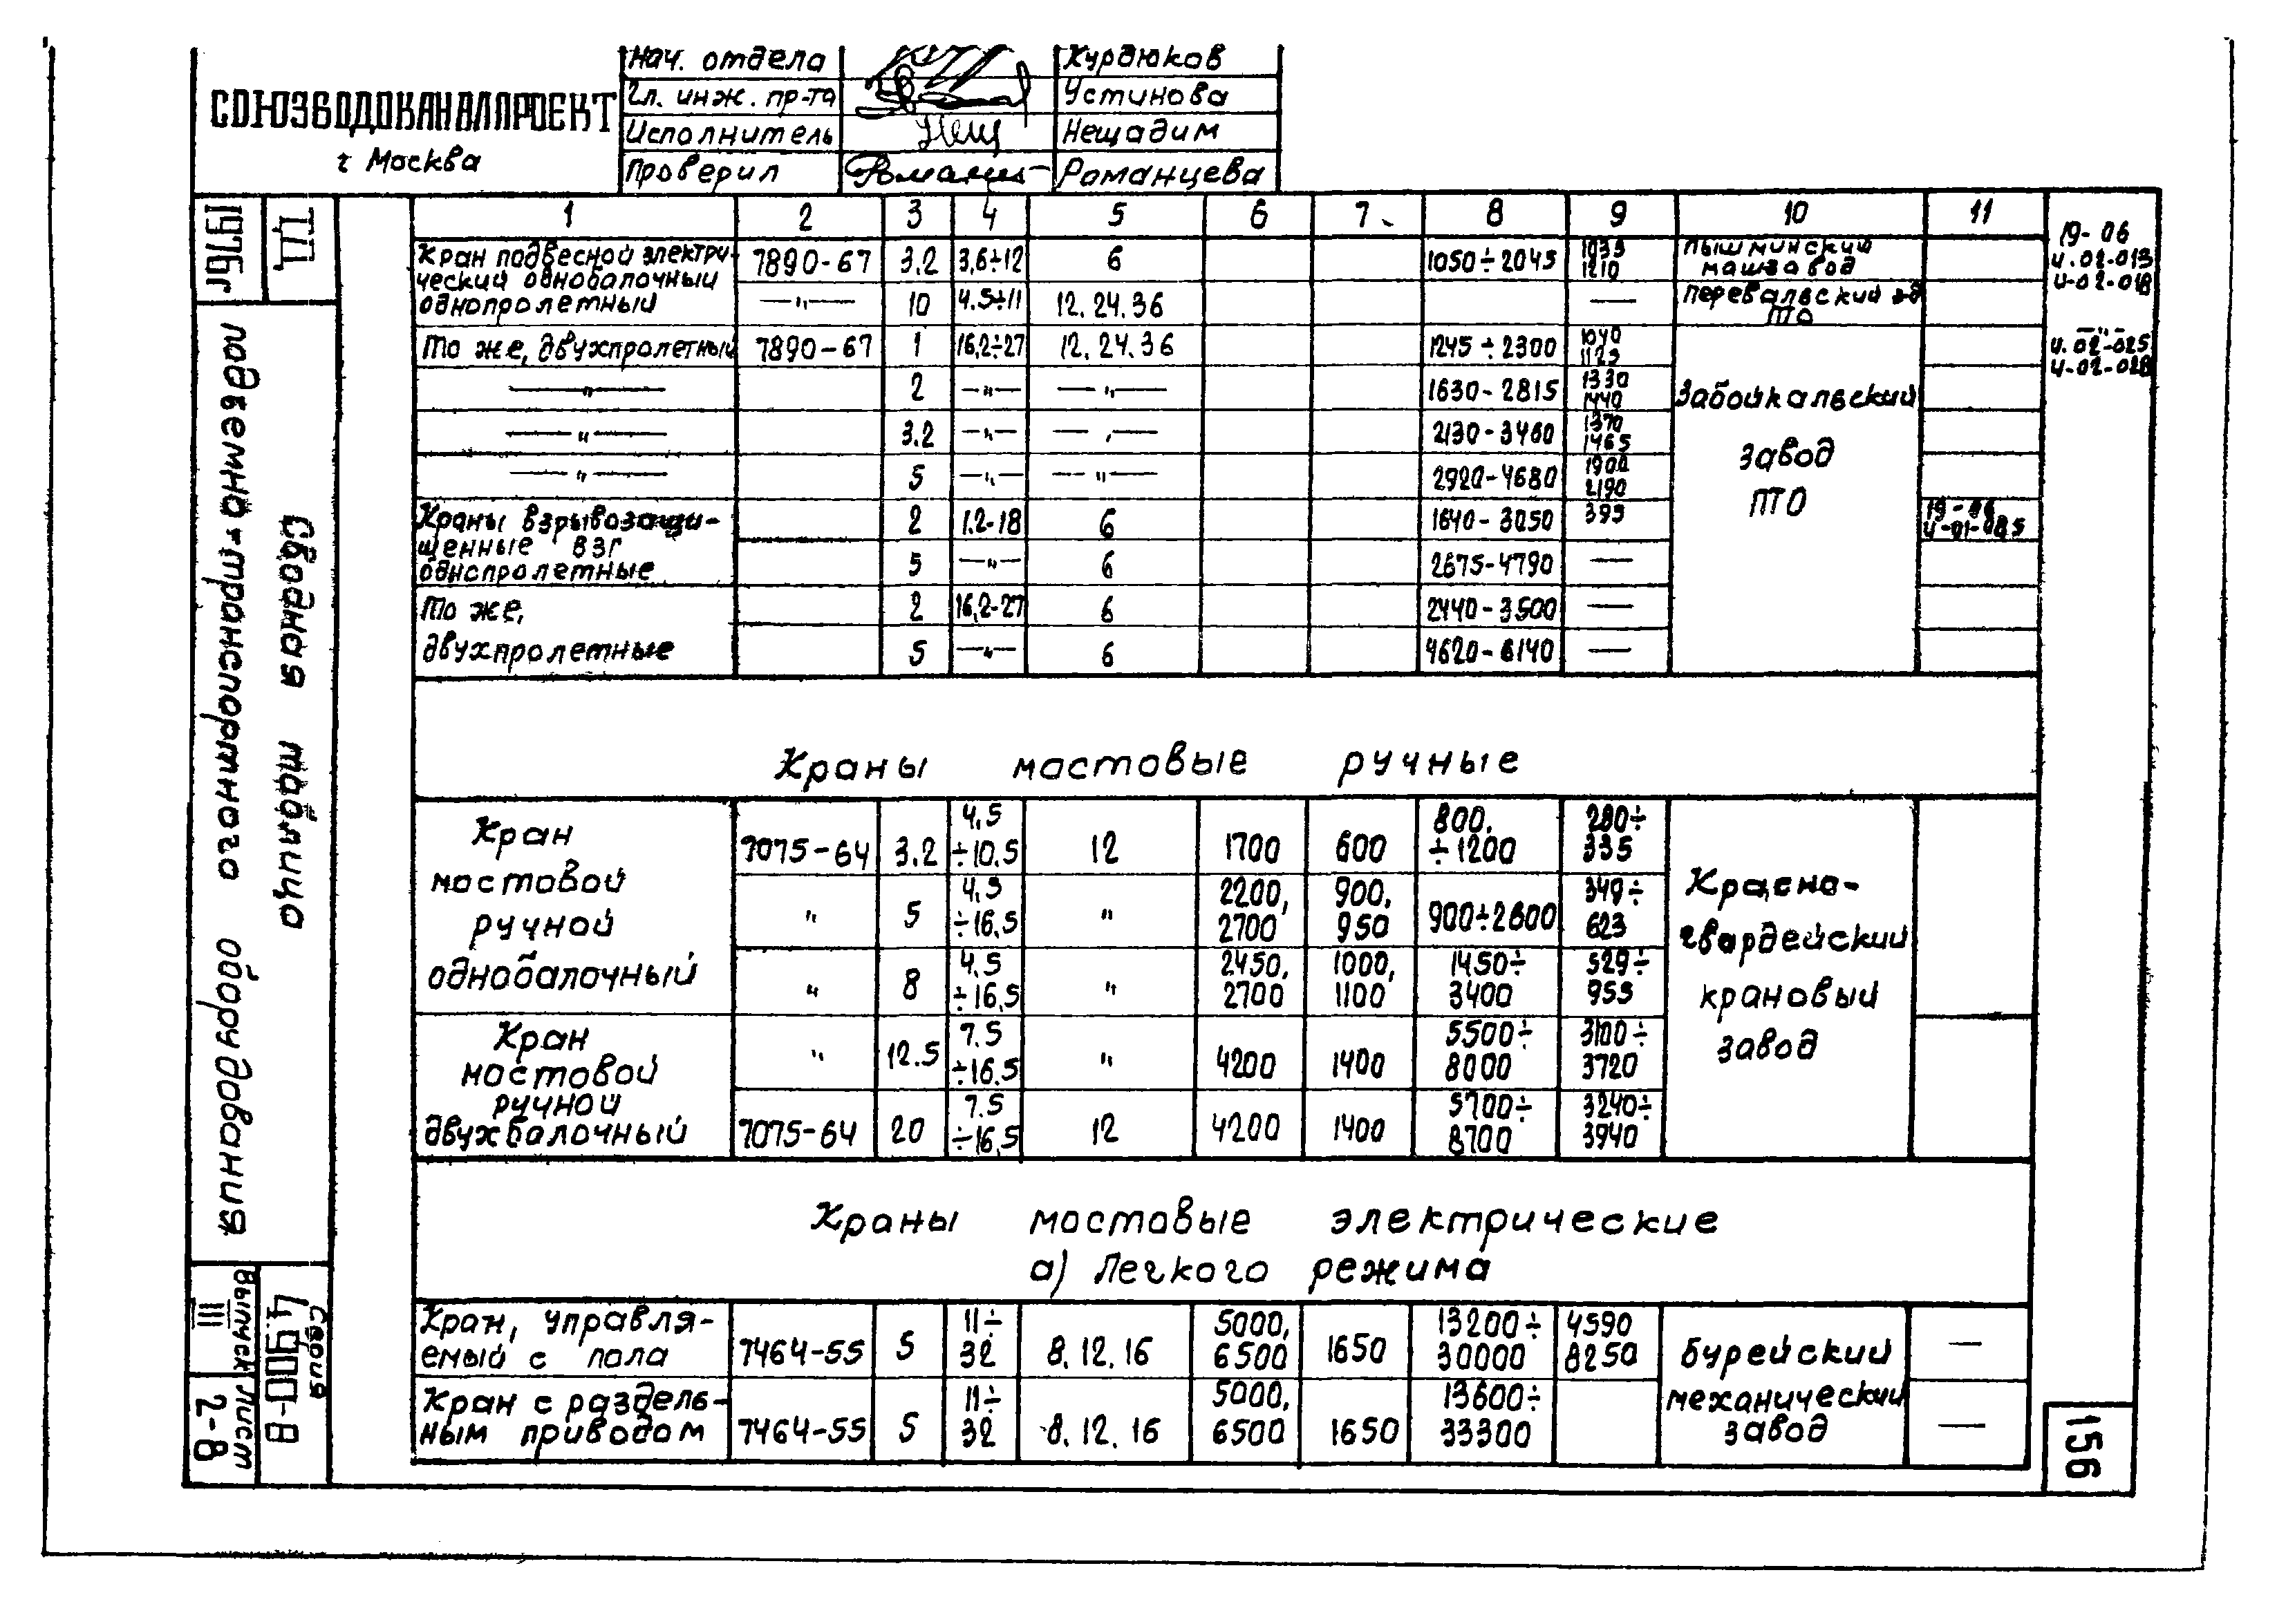 Нач. отдела Курдюков
СОЮЗВОДОКАНАЛПРОЕКТ
г Москва
Гл. инж. пр-та Устинова
Исполнитель Нещадим
Проверил Романцева
1976г
Т.П.
Сводная таблица
подъемно-транспортного оборудования
Серия
4.900-8
Выпуск
III
Лист
2-8
156
1 2 3 4 5 6 7 8 9 10 11
Кран подвесной электри-
ческий однобалочный
однопролетный
7890-67 3.2 3,6÷12 6 1050÷2045 1035 1210 Пышминский машзавод
19-06
4.02-013
4-02-018
—"— 10 4.5÷11 12.24.36 — Перевальский з-д ПТО
То же, двухпролетный 7890-67 1 16,2÷27 12.24.36 1245÷2300 1040 1125
—"—
4.02-025
4-02-028
—"— 2 —"— —"— 1630-2815 1330 1440
—"— 3.2 —"— —"— 2130-3460 1370 1465
—"— 5 —"— —"— 2920-4680 1900 2190
Забайкальский
завод
ПТО
Краны взрывозащи-
щенные ВЗГ
однопролетные
2 1.2-18 6 1640-3050 395
19-06
4-01-085
5 —"— 6 2675-4790 —
То же,
двухпролетные
2 16,2-27 6 2440-3500 —
5 —"— 6 4620-6140 —
Краны мостовые ручные
Кран
мостовой
ручной
однобалочный
7075-64 3.2 4.5 ÷10.5 12 1700 600 800. ÷1200 280÷ 335
" 5 4.5 ÷16.5 " 2200, 2700 900, 950 900÷2600 349÷ 623
" 8 4.5 ÷16.5 " 2450, 2700 1000, 1100 1450÷ 3400 529÷ 953
Кран
мостовой
ручной
двухбалочный
" 12.5 7.5 ÷16.5 " 4200 1400 5500÷ 8000 3100÷ 3720
7075-64 20 7.5 ÷16.5 12 4200 1400 5700÷ 8700 3240÷ 3940
Красно-
гвардейский
крановый
завод
Краны мостовые электрические
а) Легкого режима
Кран, управля-
емый с пола
7464-55 5 11÷ 32 8.12.16 5000, 6500 1650 13200÷ 30000 4590 8250 —
Кран с раздель-
ным приводом
7464-55 5 11÷ 32 8.12.16 5000, 6500 1650 13600÷ 33300 —
Бурейский
механический
завод